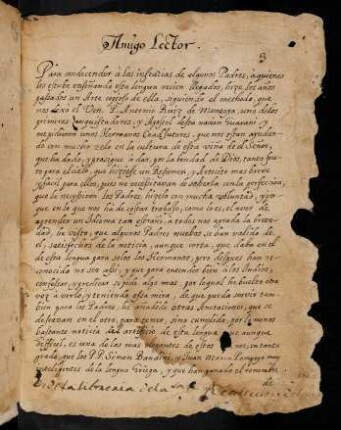 Amigo Lector.
Para condecender a las instancias de algunos Padres, a quienes
les estube enseñando esta lengua recien llegados, hize los años
passados un Arte copioso de ella, siguiendo el methodo, que
nos dexo el Ven. P. Antonio Ruiz de Montoya, uno de los
primeros conquistadores, y Apostol desta nacion Guarani: y
me pidieron unos Hermanos Coadjutores, que nos estan ayudan
do con mucho zelo en la cultura de esta viña de el Señor,
que ha dado, y prosigue a dar, por la bondad de Dios, tanto fru
to para el cielo, que hiziesse un Resumen, y Artecito mas breve
y facil para ellos, pues no necessitavan de saberla con la perfeccion,
que la necessitan los Padres. hizelo con mucha voluntad, y co
mo en lo que nos ha de costar trabajo, como lo es, el aver de
aprender un Idioma tan estraño, a todos nos agrada la breve
dad, he visto, que algunos Padres nuebos se han valido de
el, satisfechos de la noticia, aunque corta, que daba en el
de esta lengua para solos los Hermanos, pero despues han re
conocido no ser assi, y que para entender bien a los Indios,
confessar, y predicar se pide algo mas. por loqual he buelto otra
vez a verlo, y teniendo esta mira, de que pueda servir tam
bien para los Padres, he añadido otras Anotaciones, que
deseavan en el otro, para tener, sino cumplida, por lo menos
bastante noticia del artificio de esta lengua que aunque
dificil, es una de las mas elegantes de estos en tanto
grado, que los P.P. Simon Bandini, y Juan Maria Pompeyo muy
inteligentes de la lengua Griega, y que han ganado el renombre
de